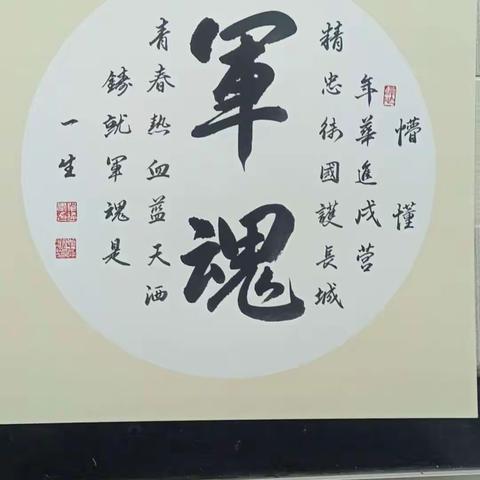 懵懂
年華進戍营
精忠衛國護長城
軍魂
青春热血蓝天洒
鑄就軍魂是
一生